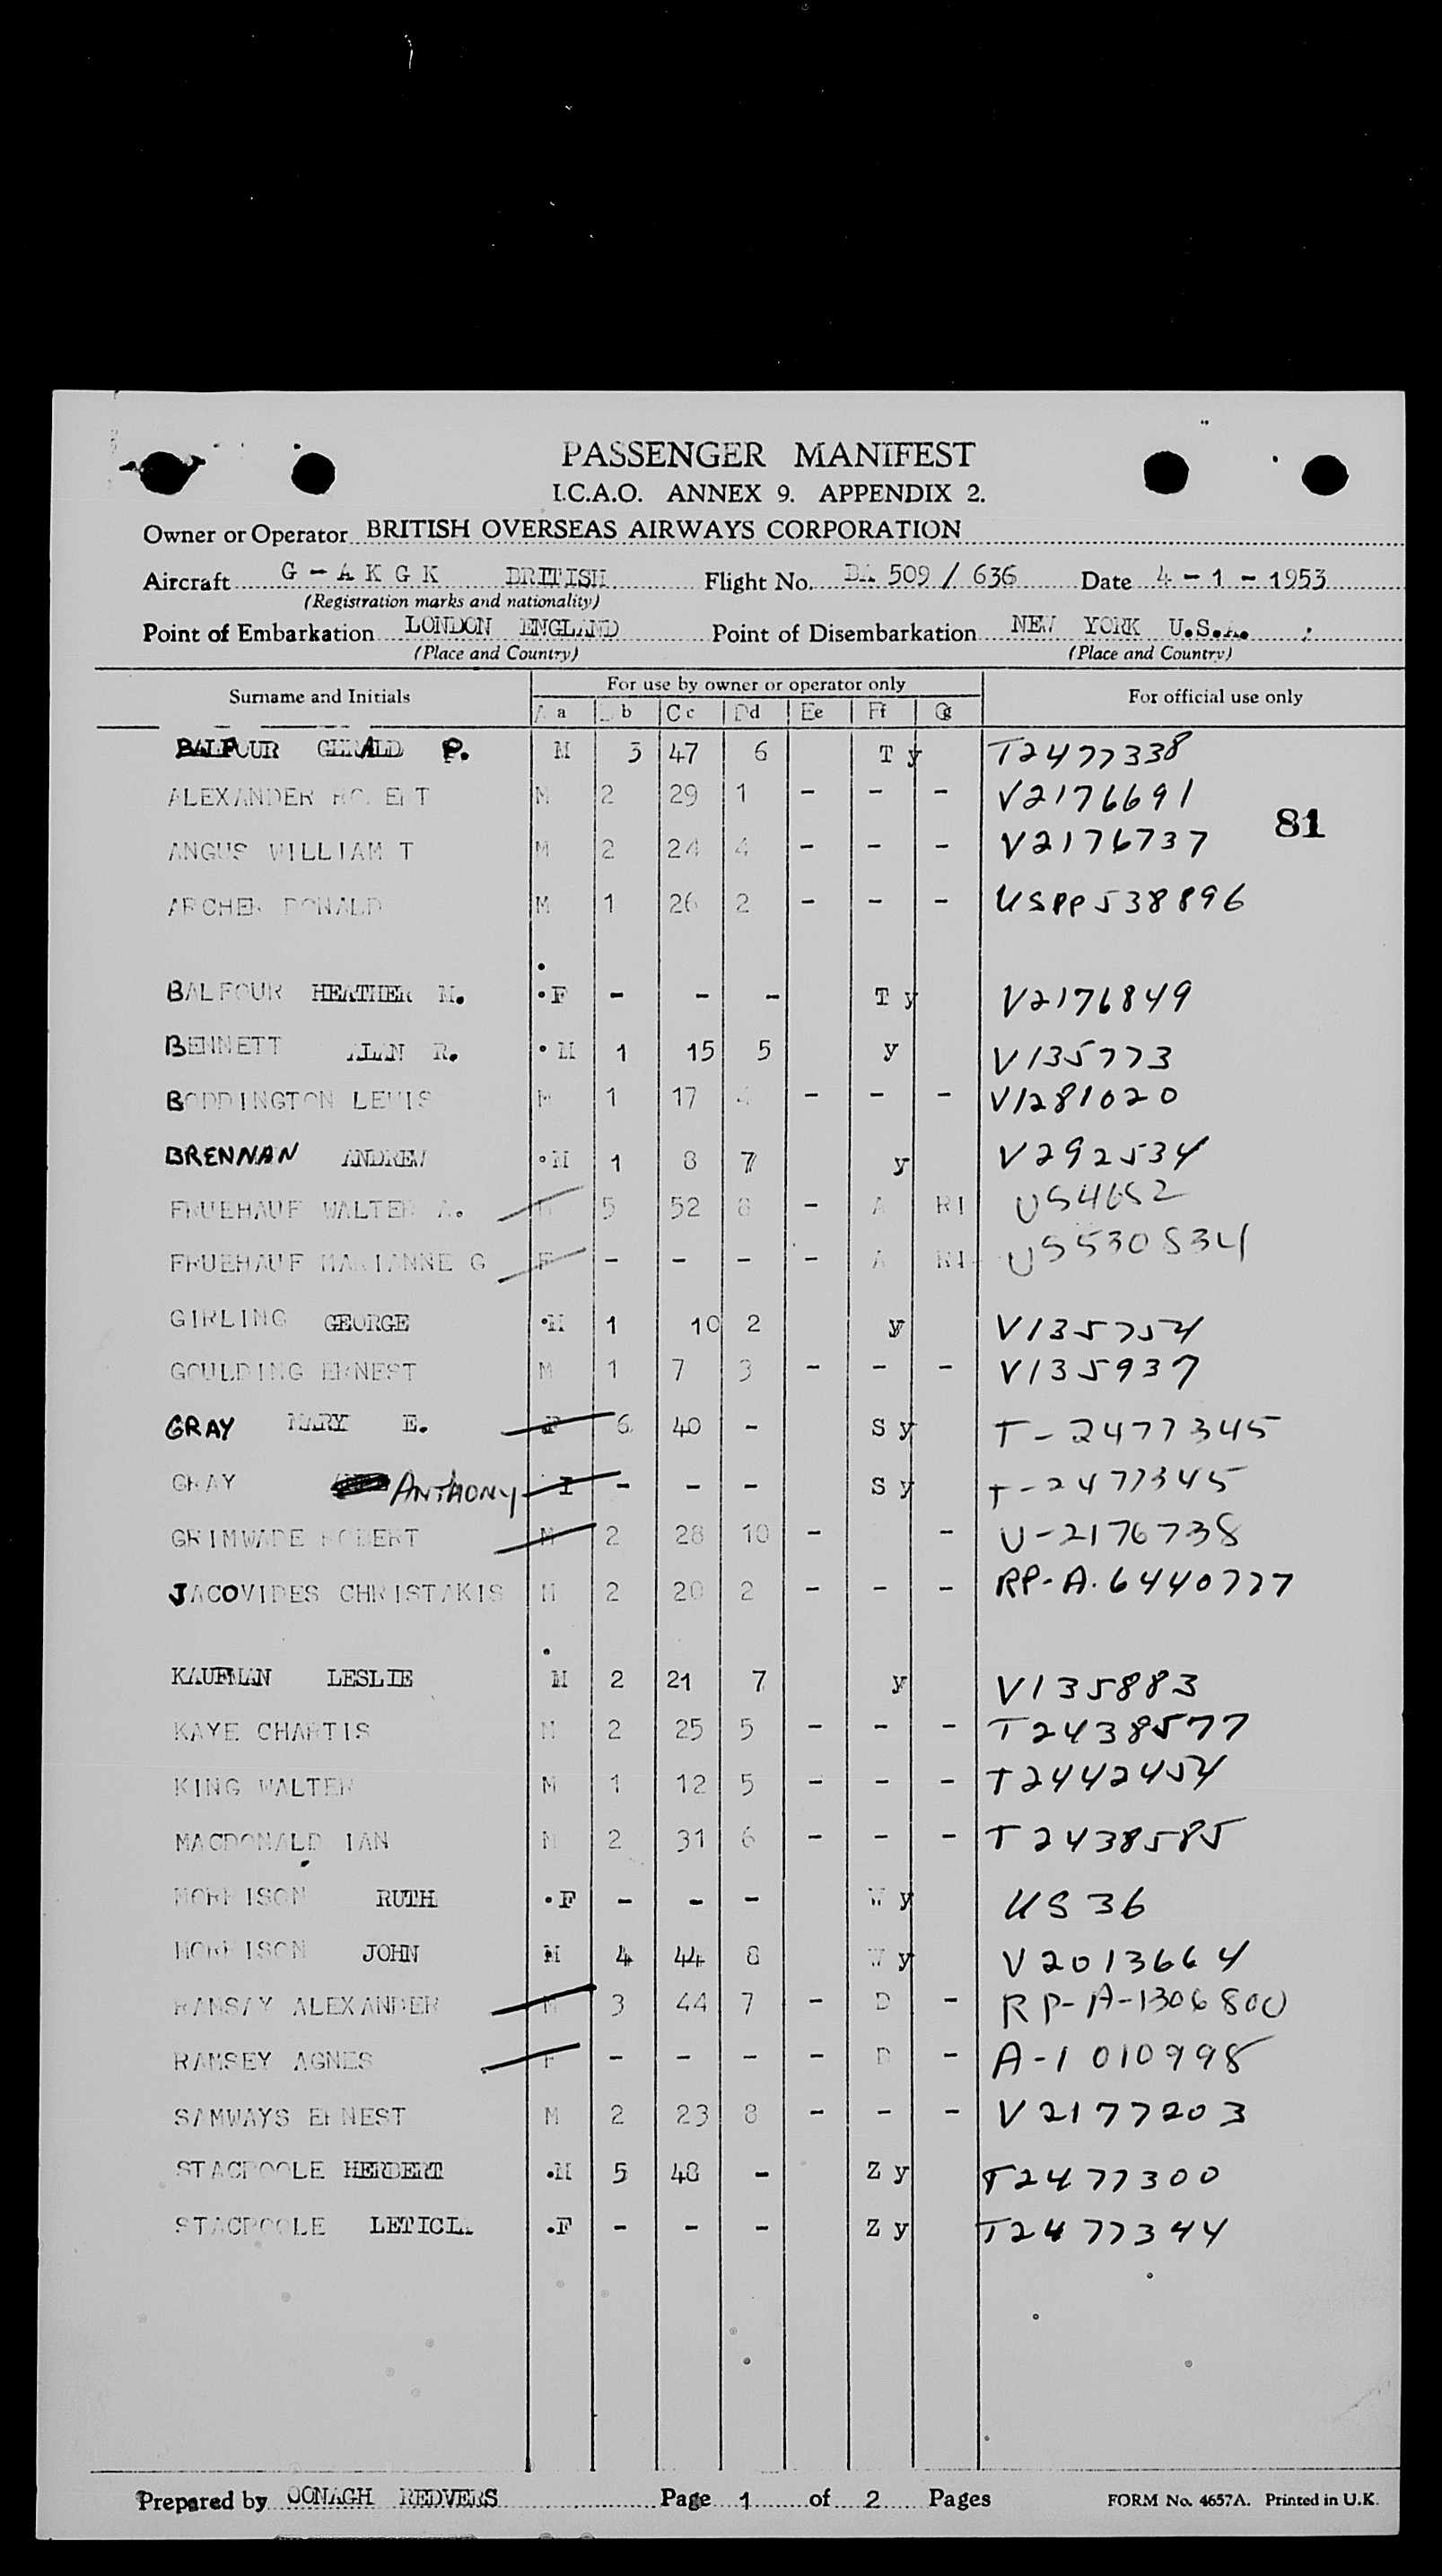 PASSENGER MANIFEST
I.C.A.O. ANNEX 9. APPENDIX 2.
Owner or Operator BRITISH OVERSEAS AIRWAYS CORPORATION
Aircraft G - A K G K BRITISH Flight No. BA 509 / 636 Date 4 - 1 - 1953
(Registration marks and nationality)
Point of Embarkation LONDON ENGLAND Point of Disembarkation NEW YORK U.S.A.
(Place and Country) (Place and Country)
Surname and Initials For use by owner or operator only For official use only
a b C c D d E e F f G g
BALFOUR GERALD P. M 3 47 6 T y T2477338
ALEXANDER ROBERT M 2 29 1 - - - V2176691
81
ANGUS WILLIAM T M 2 24 4 - - - V2176737
ARCHER DONALD M 1 26 2 - - - USPP538896
BALFOUR HEATHER M. F - - - T y V2176849
BENNETT ALAN R. M 1 15 5 y V135773
BODDINGTON LEWIS M 1 17 4 - - - V1281020
BRENNAN ANDREW M 1 8 7 y V292534
FRUEHAUF WALTER A. 5 52 8 - A R1
FRUEHAUF MARIANNE G F - - - - A R1
GIRLING GEORGE M 1 10 2 y V135754
GOULDING ERNEST M 1 7 3 - - - V135937
GRAY MARY E. F 6 40 - S y T-2477345
GRAY ANTHONY I - - - S y T-2477345
GRIMWADE ROBERT M 2 28 10 - - U-2176738
JACOVIDES CHRISTAKIS M 2 20 2 - - - RP-A.6440777
KAUFMAN LESLIE M 2 21 7 y V135883
KAYE CHARTIS M 2 25 5 - - - T2438577
KING WALTER M 1 12 5 - - - T2442454
MACDONALD IAN M 2 31 6 - - - T2438585
MORRISON RUTH F - - - W y US36
MORRISON JOHN M 4 44 8 W y V2013664
RAMSAY ALEXANDER M 3 44 7 - D - RP-A-1306800
RAMSEY AGNES F - - - - D - A-1010998
SAMWAYS ERNEST M 2 23 8 - - - V2177203
STACPOOLE HERBERT M 5 48 - Z y T2477300
STACPOOLE LETICIA F - - - Z y T2477344
Prepared by OONAGH REDVERS Page 1 of 2 Pages FORM No. 4657A. Printed in U.K.